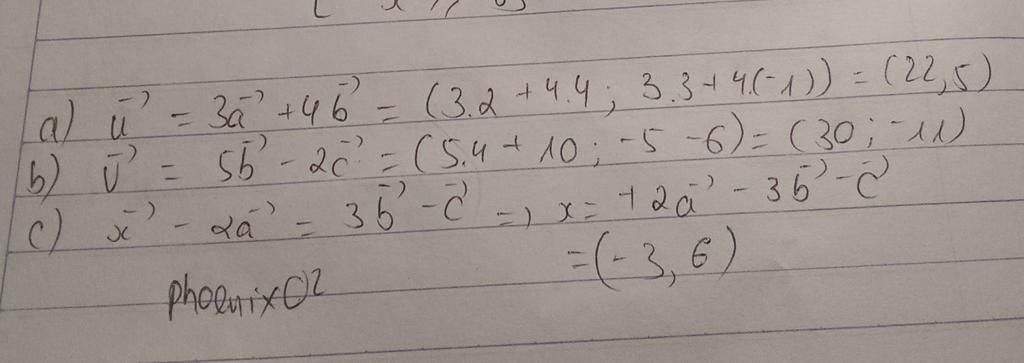 a) u⃗ = 3a⃗ + 4b⃗ = (3.2 + 4.4; 3.3 + 4.(-1)) = (22, 5)
b) v⃗ = 5b⃗ - 2c⃗ = (5.4 + 10; -5 - 6) = (30; -11)
c) x⃗ - 2a⃗ = 3b⃗ - c⃗ => x = +2a⃗ - 3b⃗ - c⃗
= (-3, 6)
phoenixO2